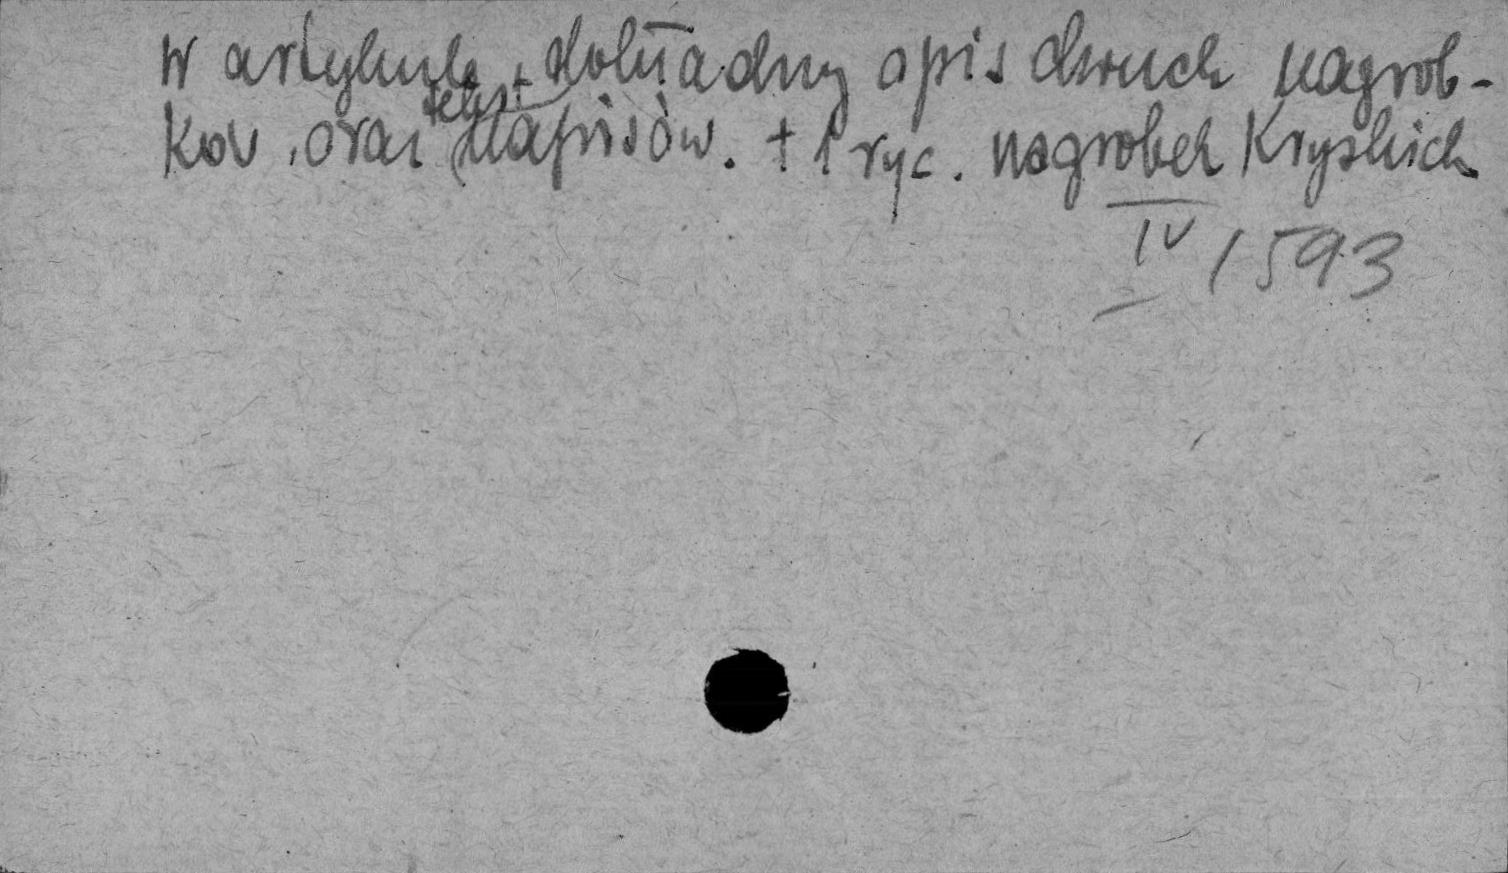 w artykule dokładny opis dwuch nagrob-
kow , oraz tekst napisów. + 1 ryc. nagrobek Kryskich
IV 1593